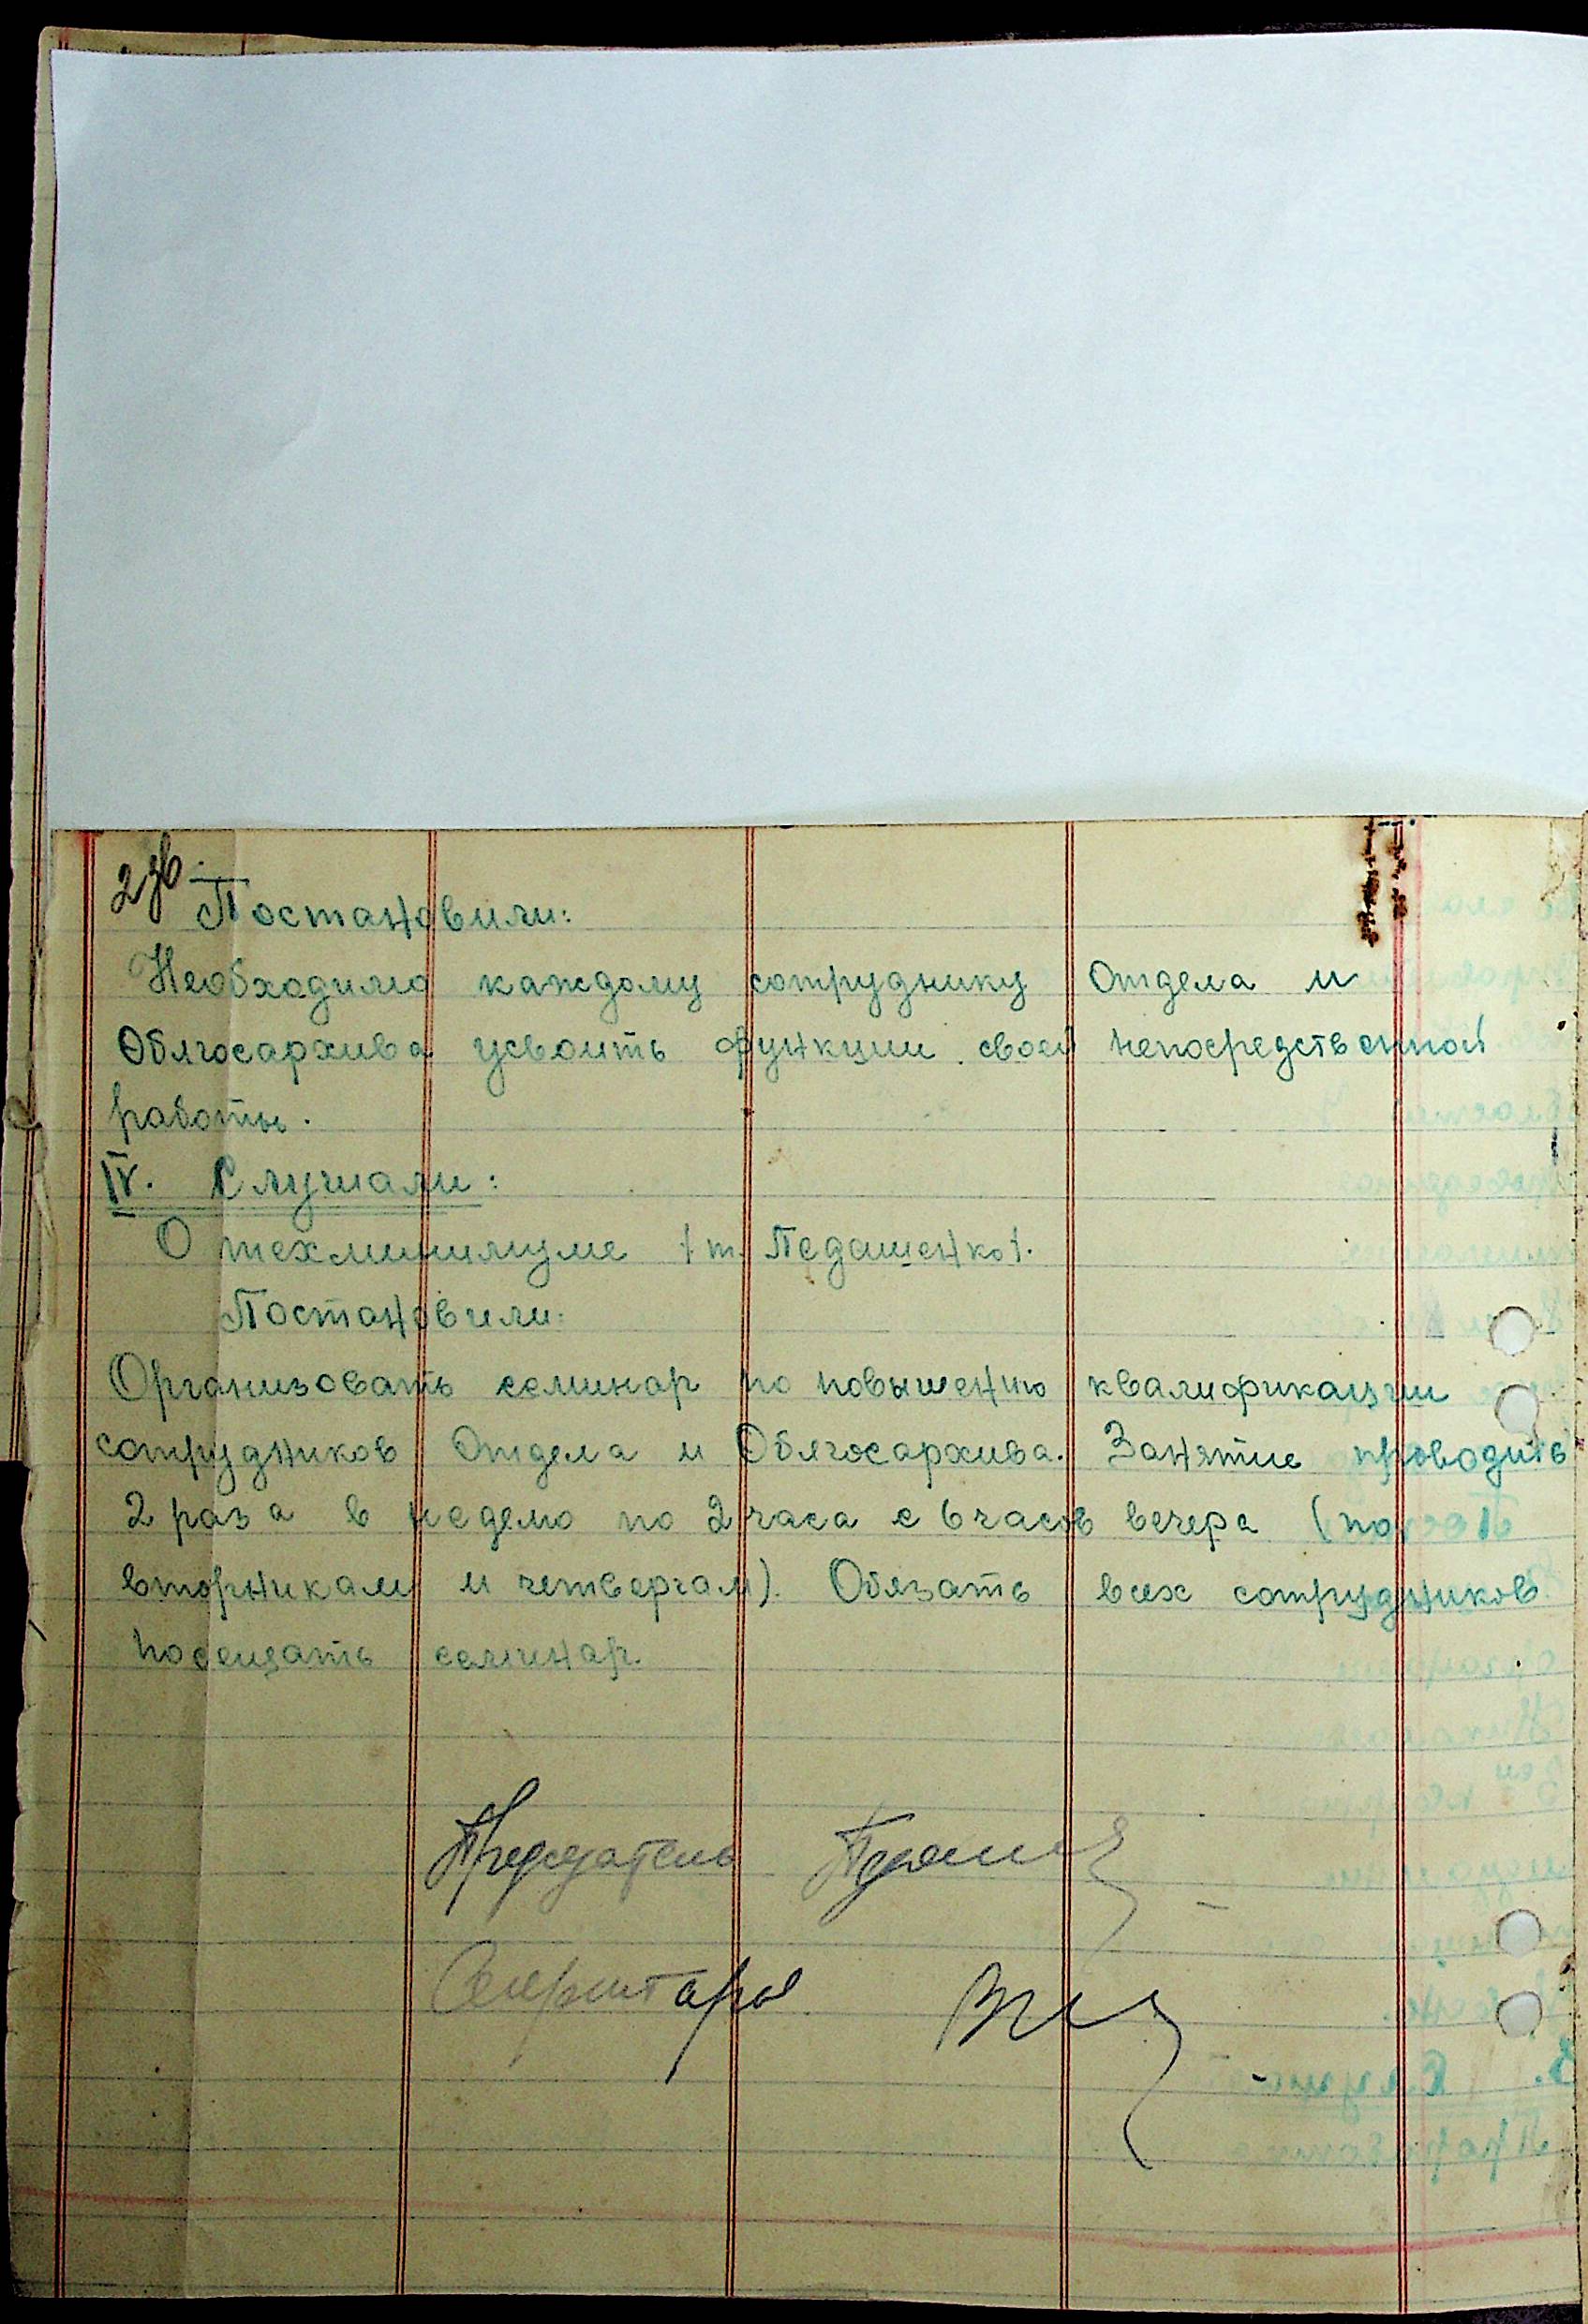 2 об.
Постановили:
Необходимо каждому сотруднику Отдела и
Облгосархива усвоить функции своей непосредственной
работы.
IV. Слушали:
О техминимуме /т. Педашенко/.
Постановили:
Организовать семинар по повышению квалификации
сотрудников Отдела и Облгосархива. Занятие проводить
2 раза в неделю по 2 часа с 6 часов вечера (по
вторникам и четвергам). Обязать всех сотрудников
посещать семинар.
Председатель
Секретарь